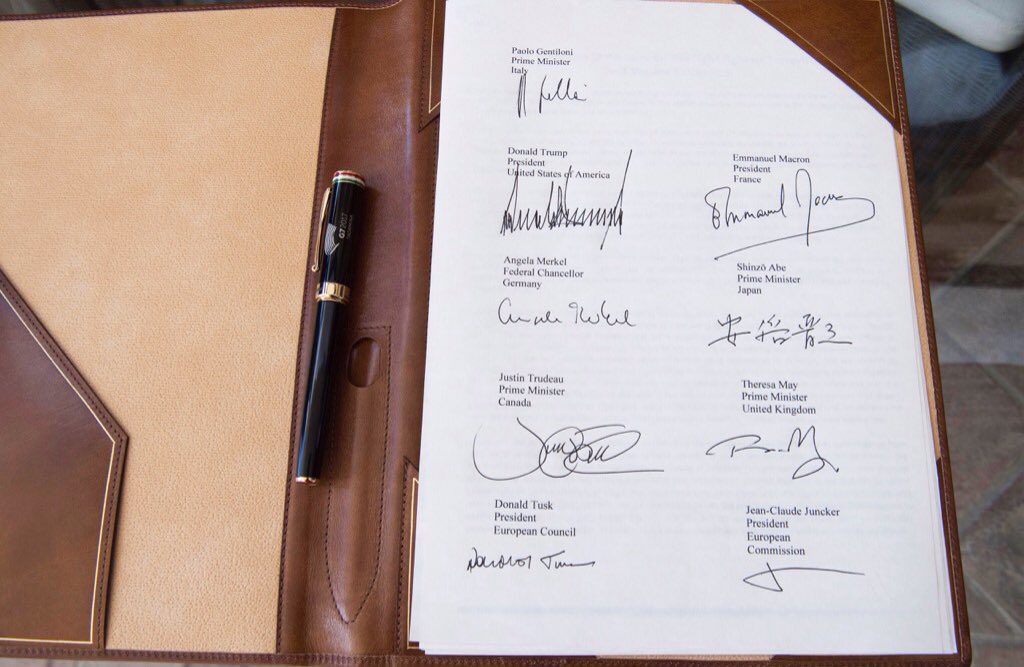 Paolo Gentiloni
Prime Minister
Italy
Donald Trump
President
United States of America
Emmanuel Macron
President
France
Emmanuel Macron
Angela Merkel
Federal Chancellor
Germany
Angela Merkel
Shinzō Abe
Prime Minister
Japan
安倍晋三
Justin Trudeau
Prime Minister
Canada
Theresa May
Prime Minister
United Kingdom
Donald Tusk
President
European Council
Donald Tusk
Jean-Claude Juncker
President
European
Commission
G7 2017